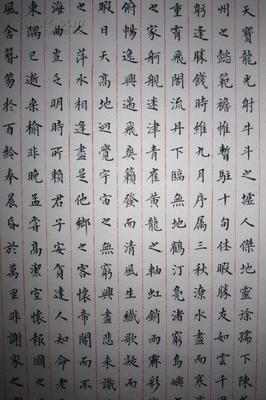 天寶龍光射牛斗之墟人傑地靈徐孺下陳
州之懿範襜帷暫駐十旬休暇勝友如雲千
躬逢勝餞時維九月序屬三秋潦水盡而寒
重霄飛閣流丹下臨無地鶴汀鳧渚窮島嶼
之家舸艦迷津青雀黃龍之軸虹銷雨霽彩
俯暢逸興遄飛爽籟發而清風生纖歌凝而
暇日天高地迥覺宇宙之無窮興盡悲來識
之人萍水相逢盡是他鄉之客懷帝閽而不
海曲豈乏明時所賴君子安貧達人知命老
東隅已逝桑榆非晚孟嘗高潔空懷報國之
風舍簪笏於百齡奉晨昏於萬里非謝家之